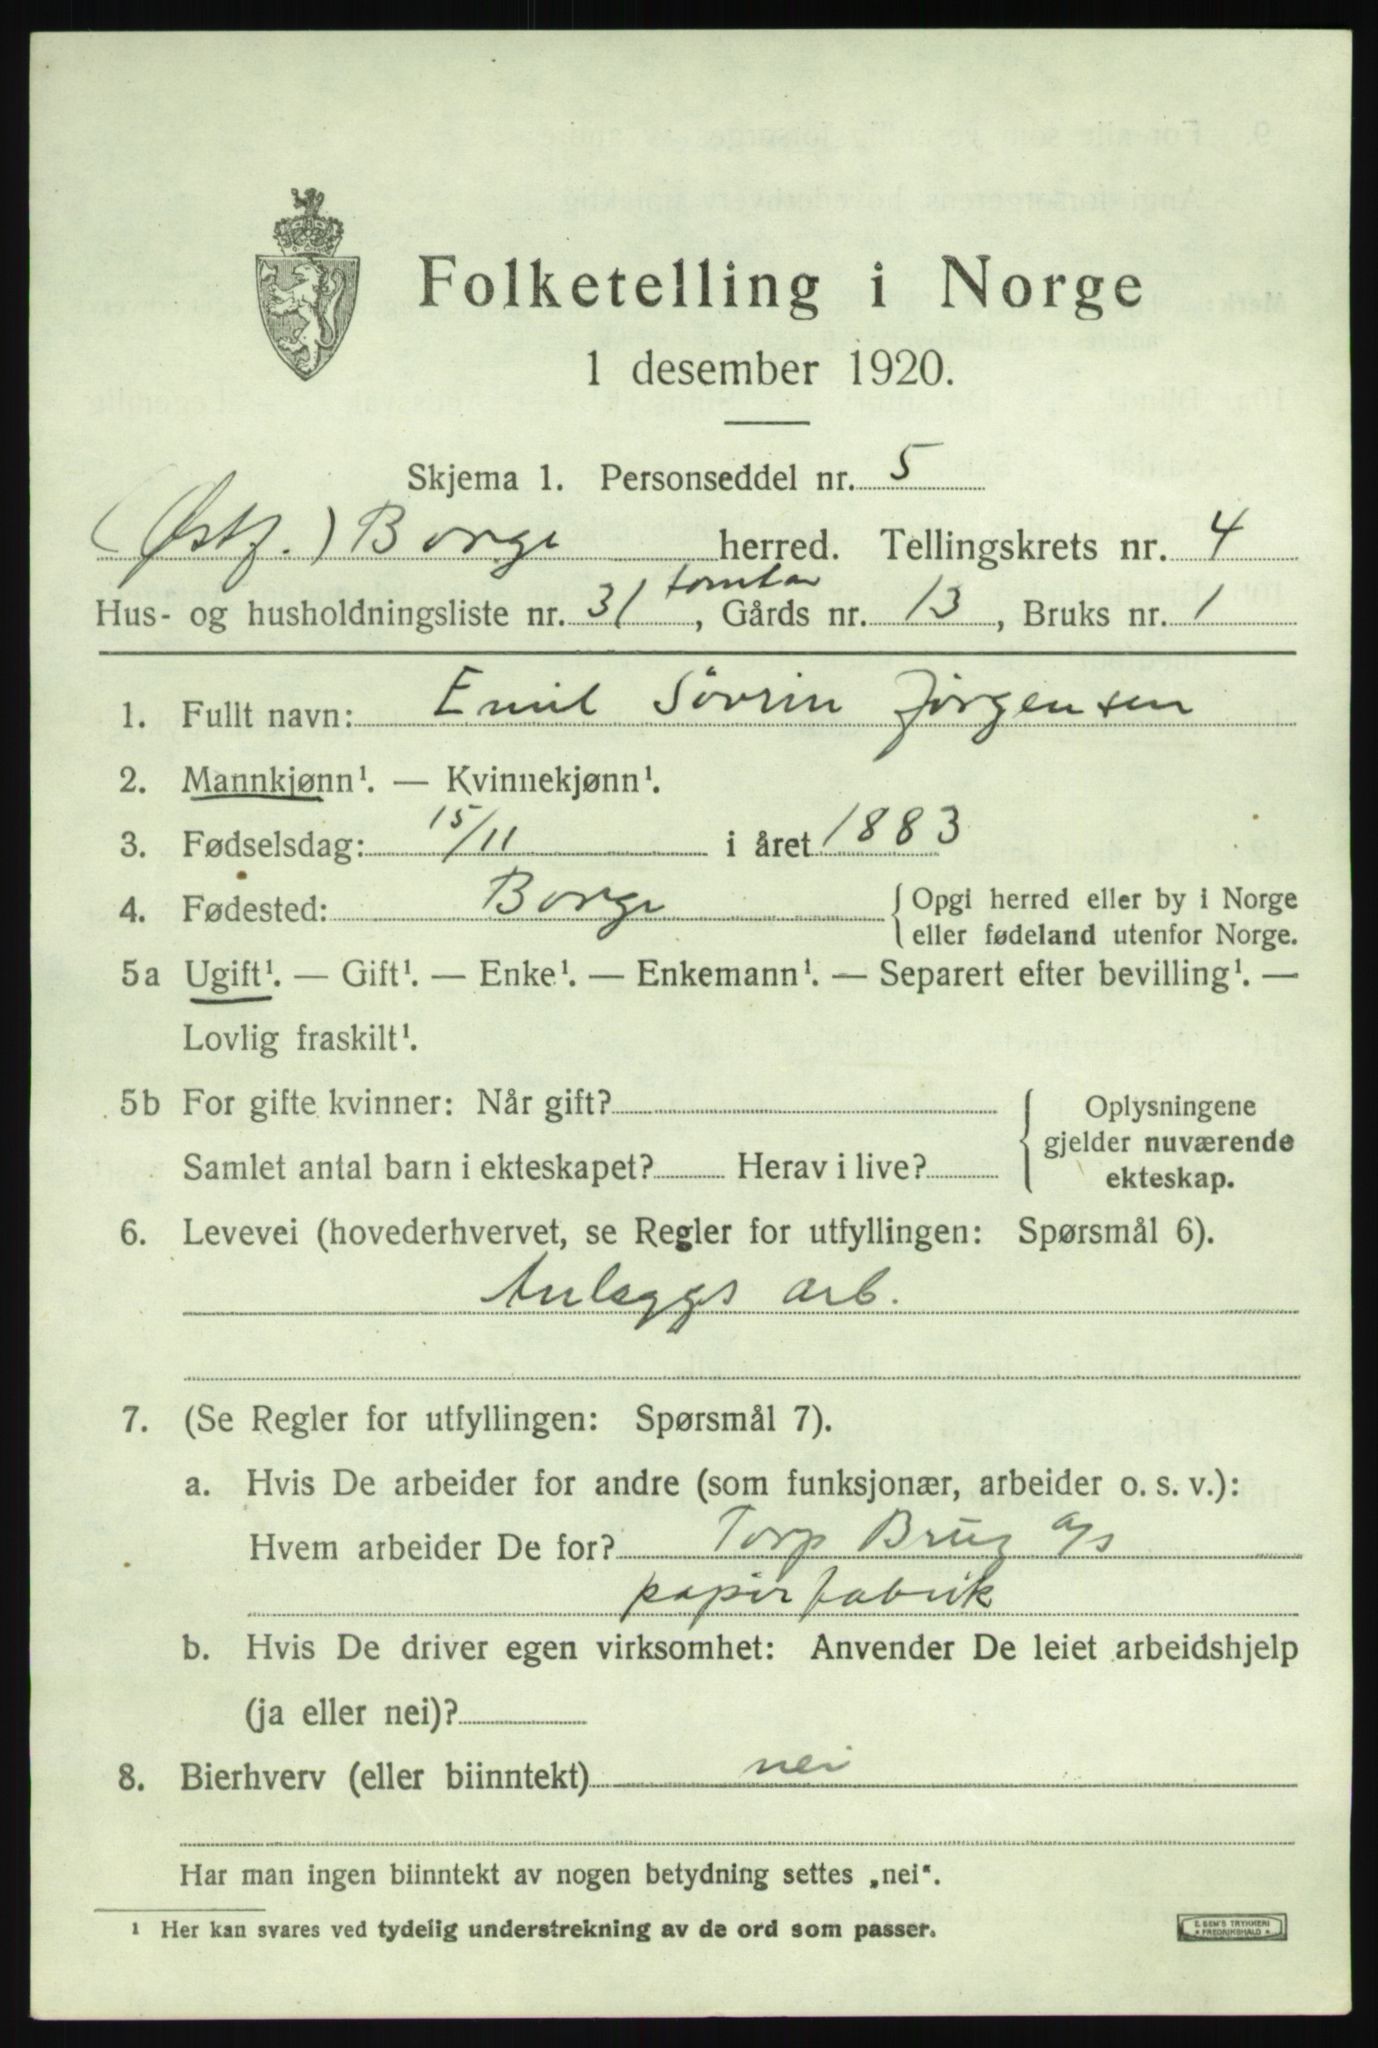 Folketelling i Norge
1 desember 1920.
Skjema 1. Personseddel nr. 5
(Østf.) Borge herred. Tellingskrets nr. 4
tomta
Hus- og husholdningsliste nr. 31, Gårds nr. 13, Bruks nr. 1
1. Fullt navn: Emil Sövrin Jörgensen
2. Mannkjønn¹. — Kvinnekjønn¹.
3. Fødselsdag: 15/11 i året 1883
4. Fødested: Borge { Opgi herred eller by i Norge
eller fødeland utenfor Norge.
5a Ugift¹. — Gift¹. — Enke¹. — Enkemann¹. — Separert efter bevilling¹. —
Lovlig fraskilt¹.
5b For gifte kvinner: Når gift? { Oplysningene
gjelder nuværende
Samlet antal barn i ekteskapet? Herav i live? ekteskap.
6. Levevei (hovederhvervet, se Regler for utfyllingen: Spørsmål 6).
Anlæggs arb.
7. (Se Regler for utfyllingen: Spørsmål 7).
a. Hvis De arbeider for andre (som funksjonær, arbeider o. s. v.):
Hvem arbeider De for? Torp Brug a/s
papirfabrik
b. Hvis De driver egen virksomhet: Anvender De leiet arbeidshjelp
(ja eller nei)?
8. Bierhverv (eller biinntekt) nei
Har man ingen biinntekt av nogen betydning settes „nei“.
¹ Her kan svares ved tydelig understrekning av de ord som passer.
E. SEM'S TRYKKERI
* FREDRIKSHALD *